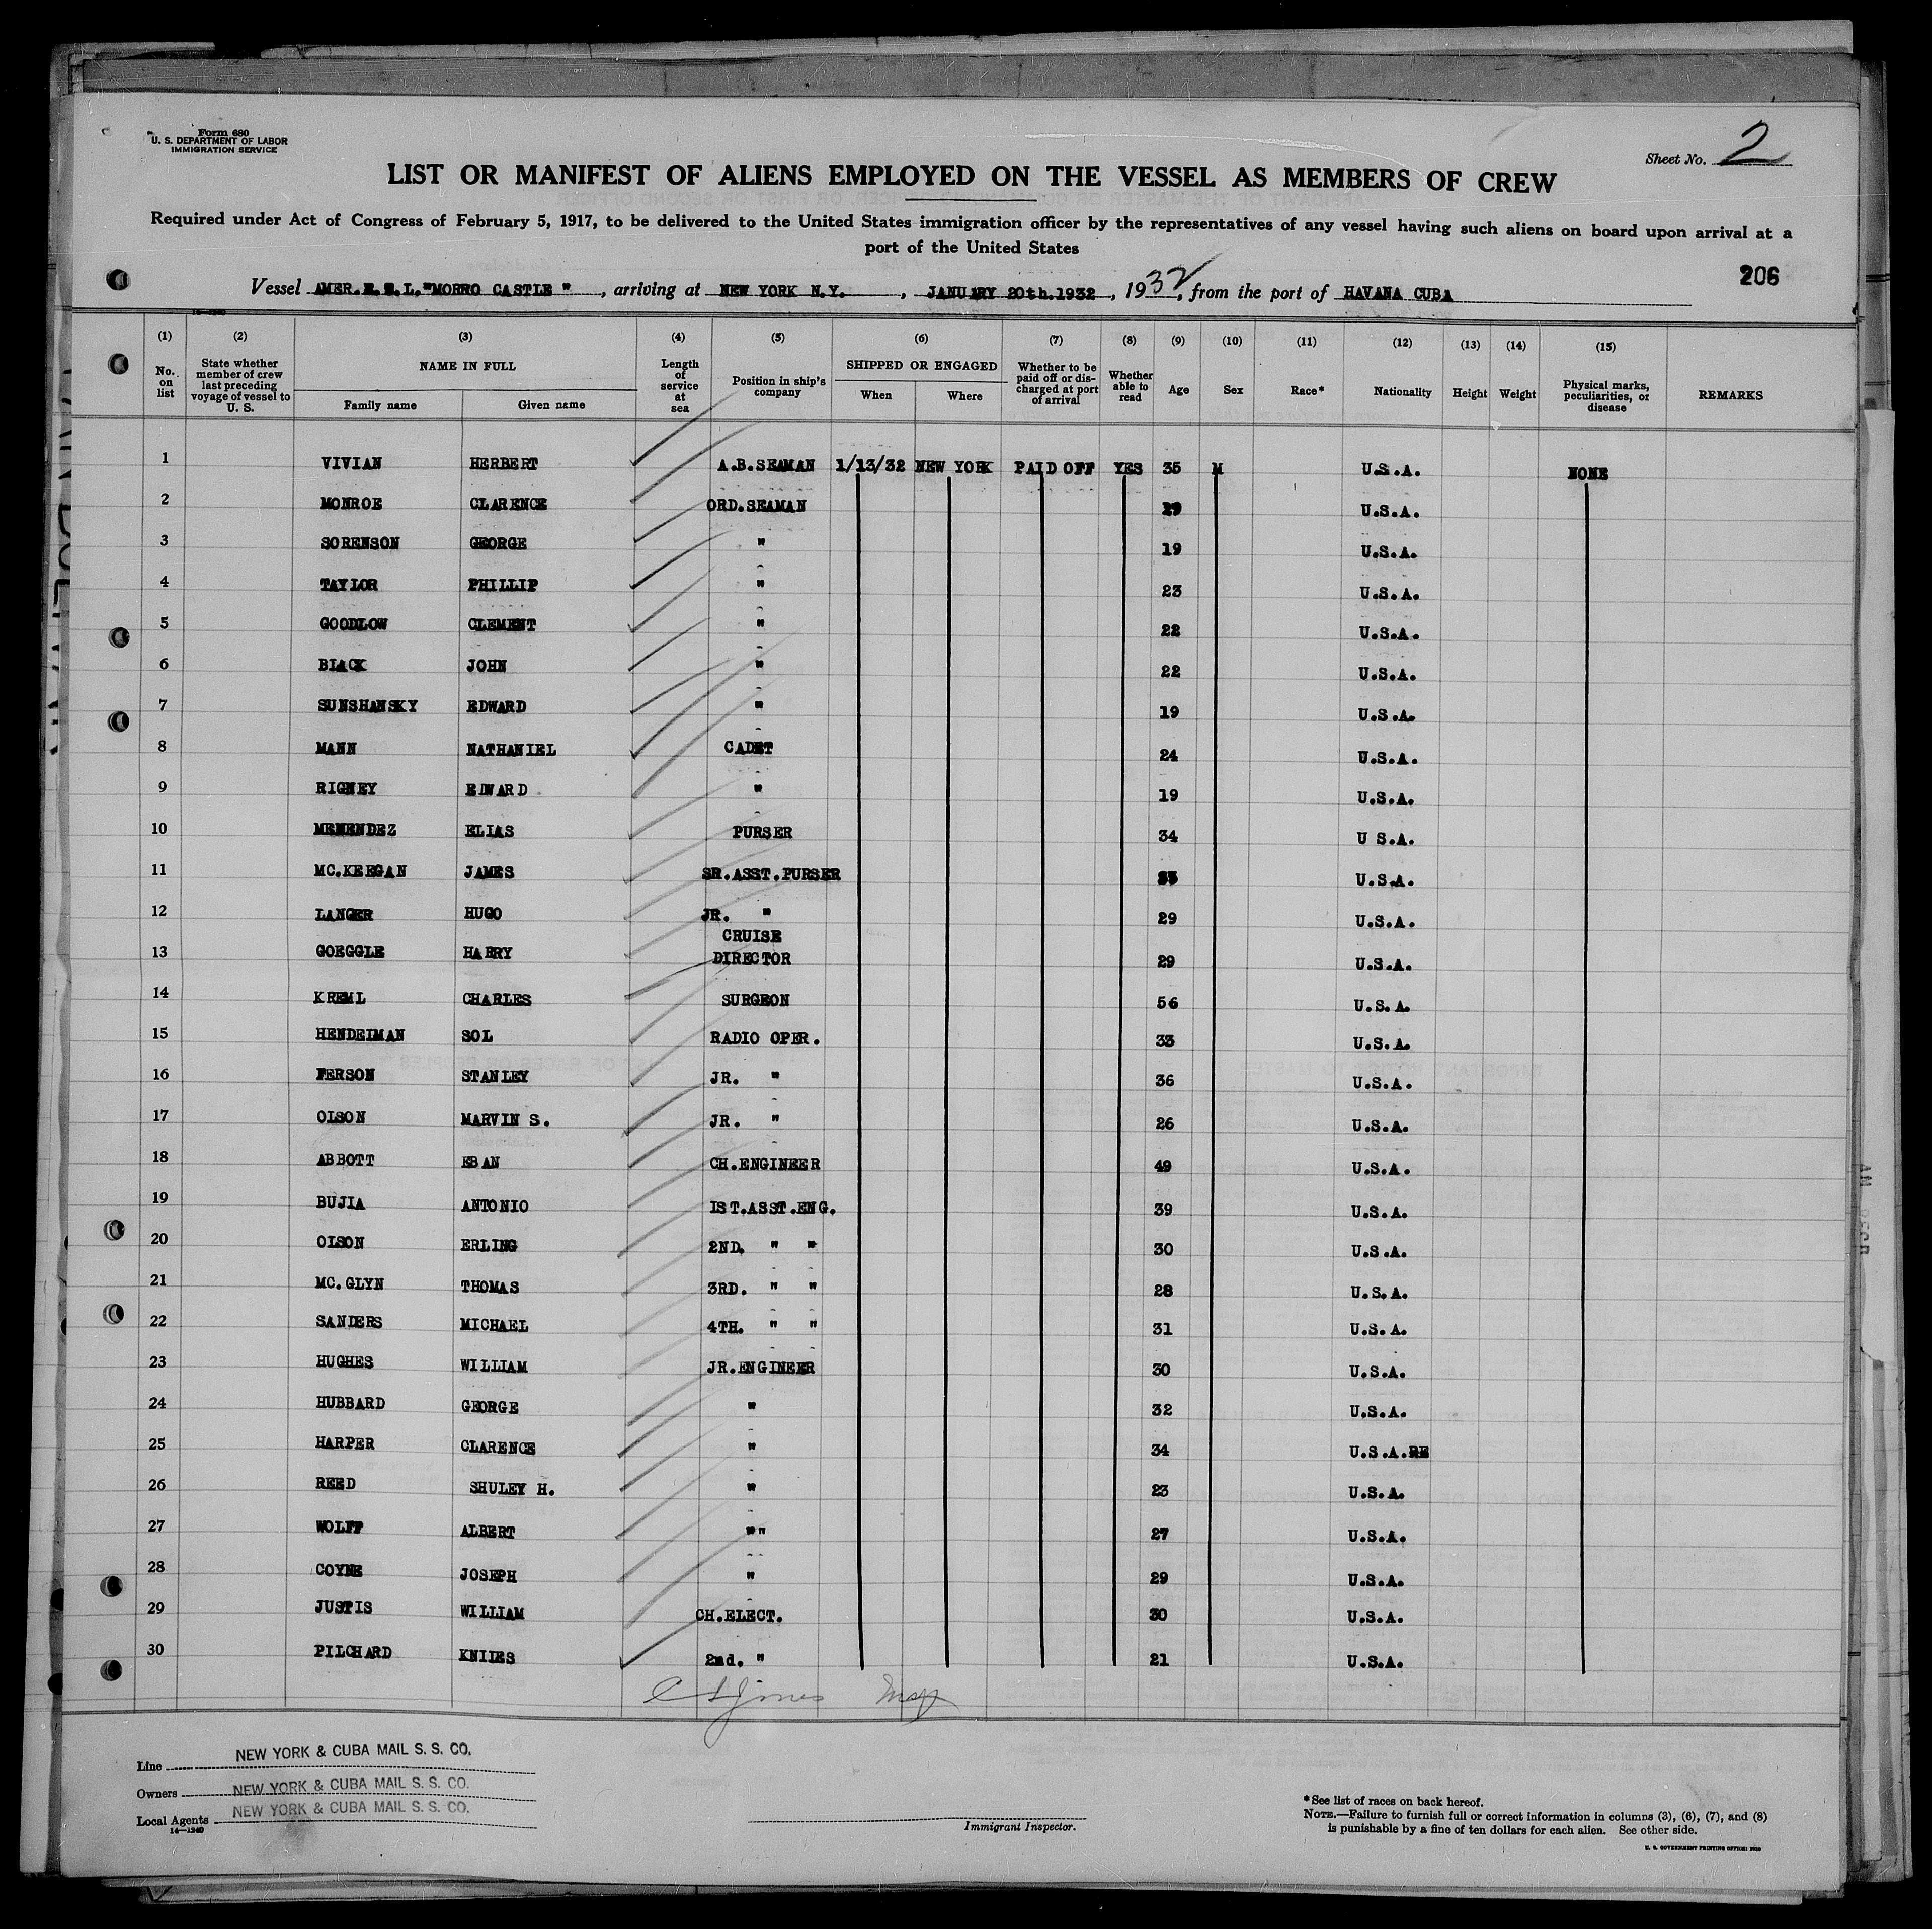 Form 680
U. S. DEPARTMENT OF LABOR
IMMIGRATION SERVICE
Sheet No. 2
LIST OR MANIFEST OF ALIENS EMPLOYED ON THE VESSEL AS MEMBERS OF CREW
Required under Act of Congress of February 5, 1917, to be delivered to the United States immigration officer by the representatives of any vessel having such aliens on board upon arrival at a
port of the United States
206
Vessel AMER. S.L."MORRO CASTLE", arriving at NEW YORK N.Y., JANUARY 20th.1932, 1932, from the port of HAVANA CUBA
(1) (2) (3) (4) (5) (6) (7) (8) (9) (10) (11) (12) (13) (14) (15)
No. on list
State whether member of crew last preceding voyage of vessel to U. S.
NAME IN FULL
Family name Given name
Length of service at sea
Position in ship's company
SHIPPED OR ENGAGED
When Where
Whether to be paid off or discharged at port of arrival
Whether able to read
Age Sex Race* Nationality Height Weight
Physical marks, peculiarities, or disease
REMARKS
1 VIVIAN HERBERT A.B.SEAMAN 1/13/32 NEW YORK PAID OFF YES 35 M U.S.A. NONE
2 MONROE CLARENCE ORD.SEAMAN 19 U.S.A.
3 SORENSON GEORGE " 19 U.S.A.
4 TAYLOR PHILLIP " 23 U.S.A.
5 GOODLOW CLEMENT " 22 U.S.A.
6 BLACK JOHN " 22 U.S.A.
7 SUNSHANSKY EDWARD " 19 U.S.A.
8 MANN NATHANIEL CADET 24 U.S.A.
9 RIGNEY EDWARD " 19 U.S.A.
10 MENENDEZ ELIAS PURSER 34 U S.A.
11 MC.KEEGAN JAMES SR.ASST.PURSER U.S.A.
12 LANGER HUGO JR. " 29 U.S.A.
13 GOEGGLE HARRY CRUISE DIRECTOR 29 U.S.A.
14 KREML CHARLES SURGEON 56 U.S.A.
15 HENDELMAN SOL RADIO OPER. 33 U.S.A.
16 FERSON STANLEY JR. " 36 U.S.A.
17 OLSON MARVIN S. JR. " 26 U.S.A.
18 ABBOTT EBAN CH.ENGINEER 49 U.S.A.
19 BUJIA ANTONIO IST.ASST.ENG. 39 U.S.A.
20 OLSON ERLING 2ND. " " 30 U.S.A.
21 MC.GLYN THOMAS 3RD. " " 28 U.S.A.
22 SANDERS MICHAEL 4TH. " " 31 U.S.A.
23 HUGHES WILLIAM JR.ENGINEER 30 U.S.A.
24 HUBBARD GEORGE " 32 U.S.A.
25 HARPER CLARENCE " 34 U.S.A.RE
26 REED SHULEY H. " 23 U.S.A.
27 WOLFF ALBERT "" 27 U.S.A.
28 COYNE JOSEPH " 29 U.S.A.
29 JUSTIS WILLIAM CH.ELECT. 30 U.S.A.
30 PILCHARD KNILES 2nd. " 21 U.S.A.
Jones Insp
Line NEW YORK & CUBA MAIL S. S. CO.
Owners NEW YORK & CUBA MAIL S. S. CO.
Local Agents NEW YORK & CUBA MAIL S. S. CO.
14—1240
Immigrant Inspector.
*See list of races on back hereof.
NOTE.—Failure to furnish full or correct information in columns (3), (6), (7), and (8)
is punishable by a fine of ten dollars for each alien. See other side.
U. S. GOVERNMENT PRINTING OFFICE: